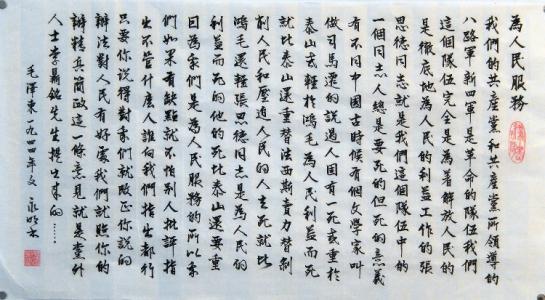 為人民服務
我們的共產黨和共產黨所領導的
八路軍新四軍是革命的隊伍我們
這個隊伍完全是為着解放人民的
是徹底地為人民的利益工作的張
思德同志就是我們這個隊伍中的
一個同志人總是要死的但死的意義
有不同中國古時候有個文學家叫
做司馬遷的說過人固有一死或重於
泰山或輕於鴻毛為人民利益而死
就比泰山還重替法西斯賣力替剝
削人民和壓迫人民的人去死就比
鴻毛還輕張思德同志是為人民的
利益而死的他的死比泰山還要重
因為我們是為人民服務的所以我
們如果有缺點就不怕別人批評指
出不管什麼人誰向我們指出都行
只要你說得對我們就改正你說的
辦法對人民有好處我們就照你的
辦精兵簡政這一條意見就是黨外
人士李鼎銘先生提出來的……
毛澤東一九四四年文